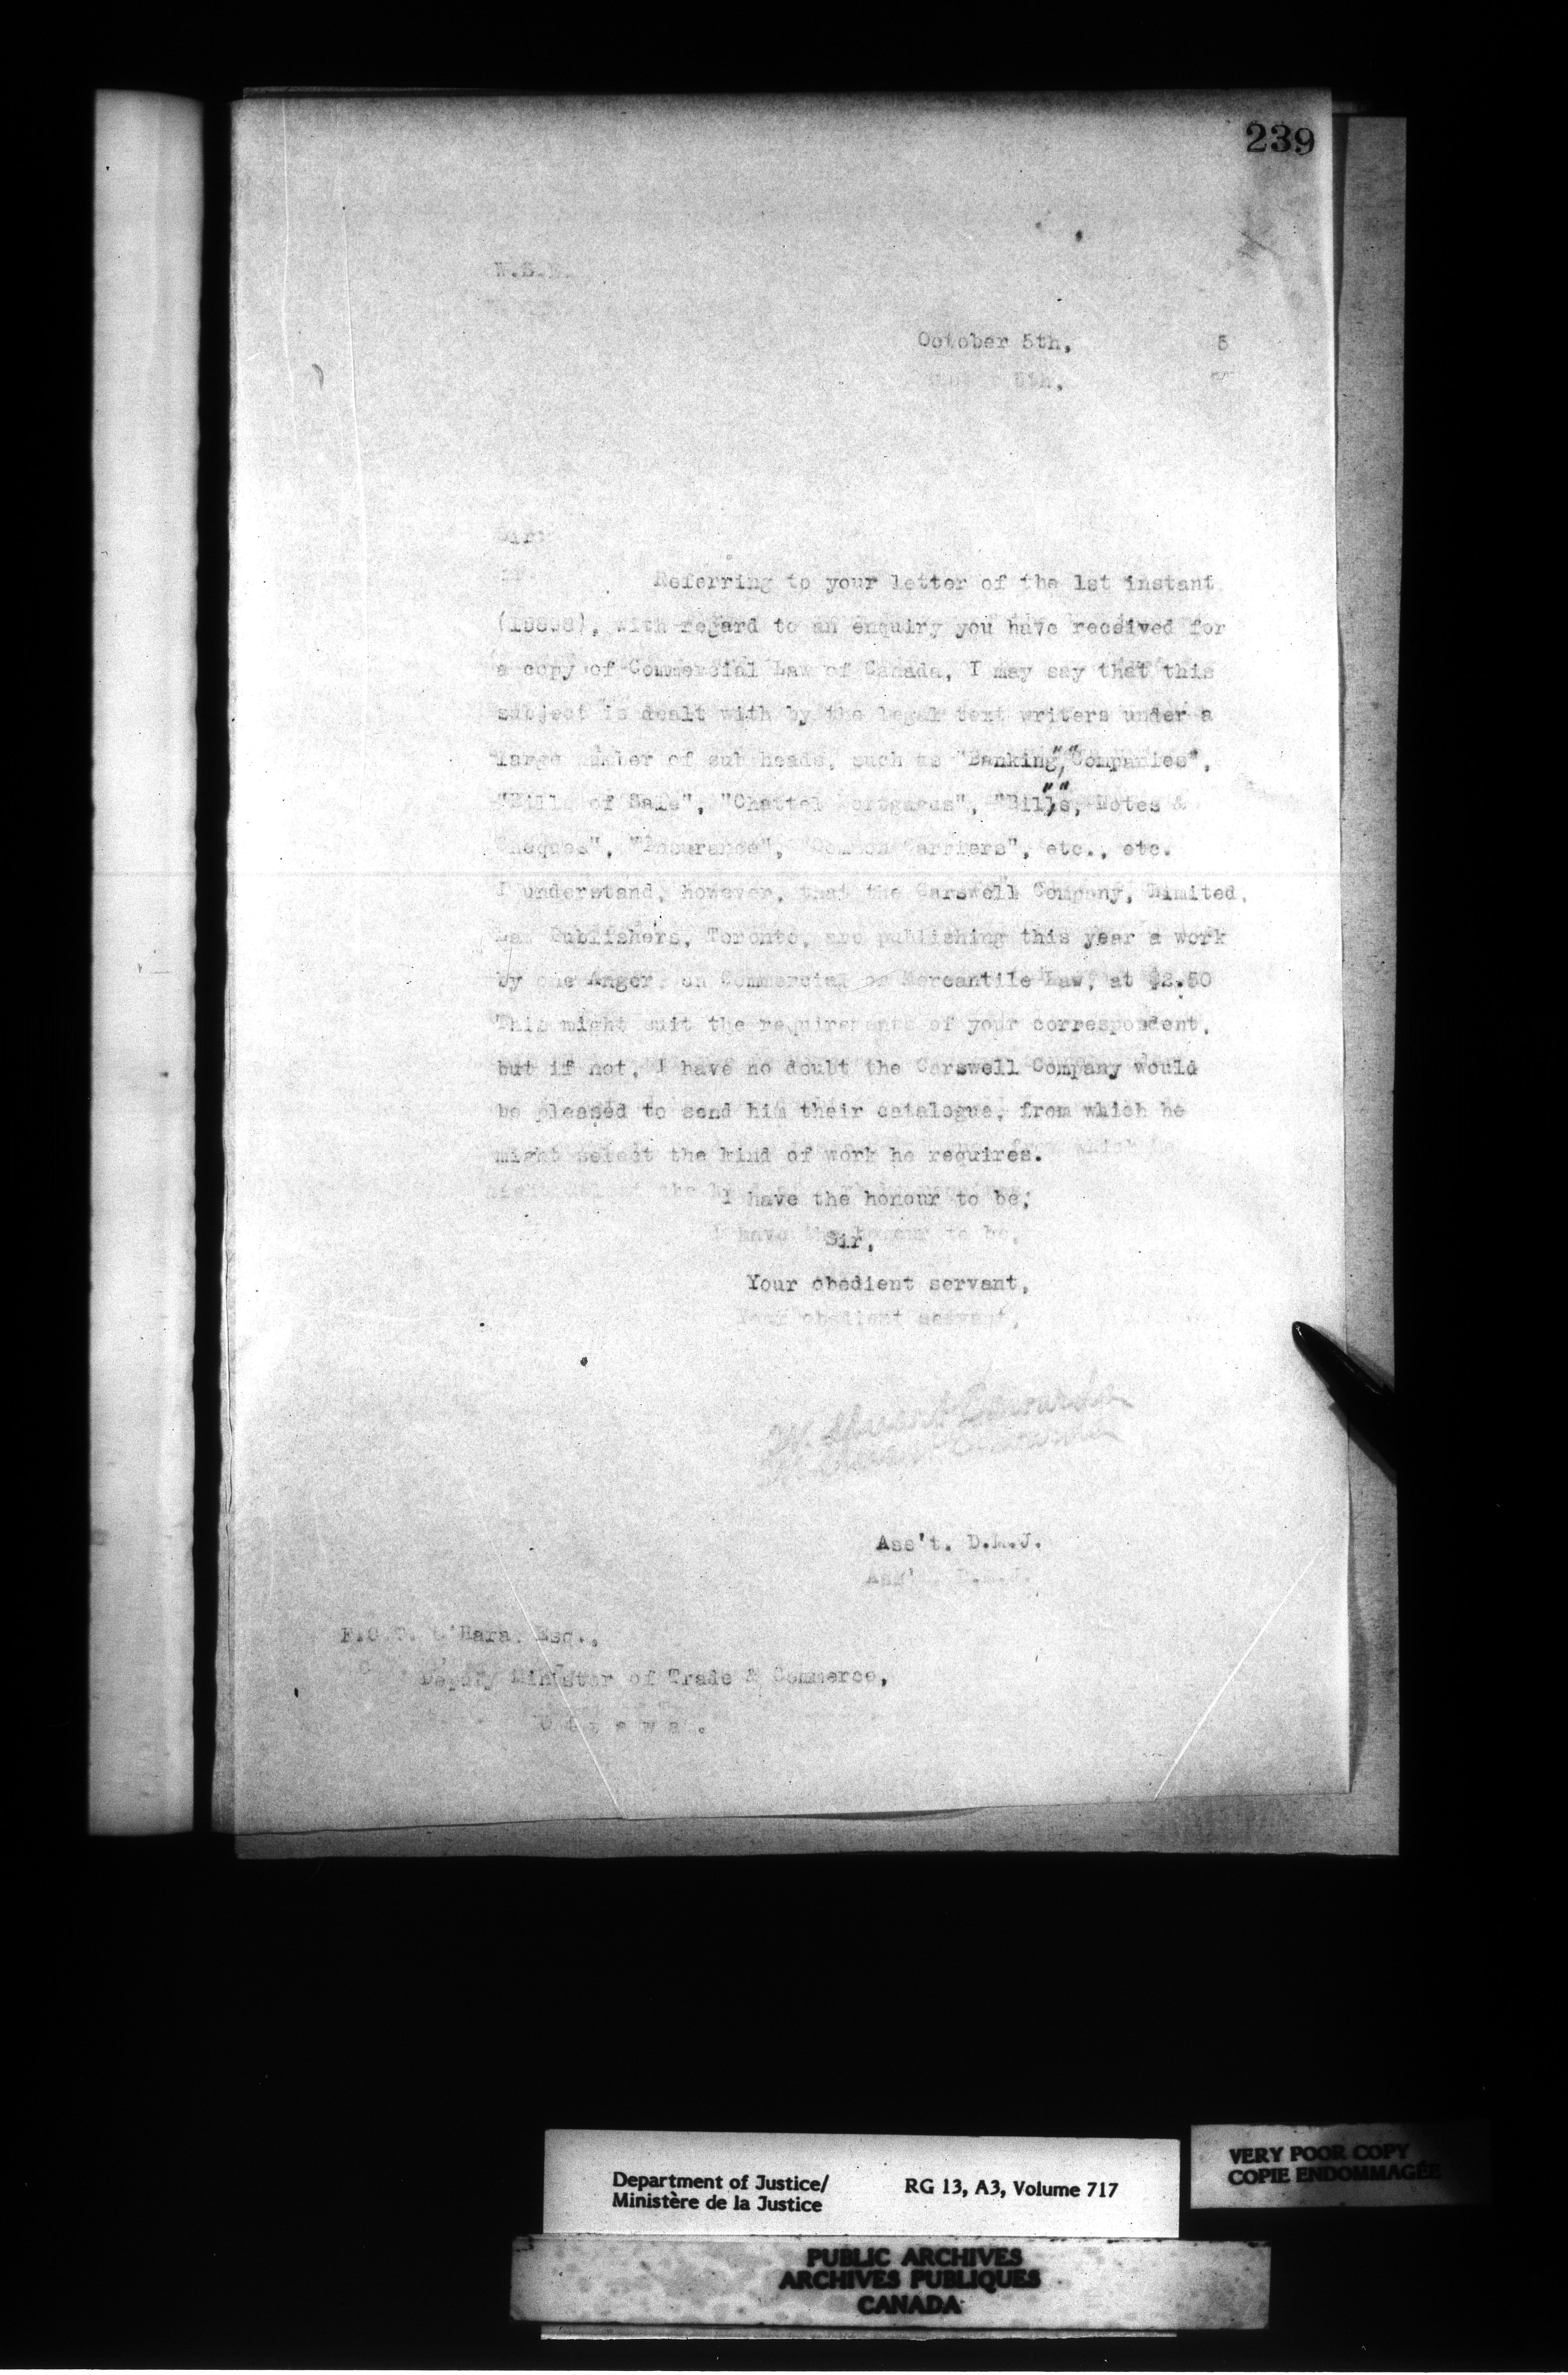 239
October 5th, 5
Sir:
Referring to your letter of the 1st instant
with regard to an enquiry you have received for
a copy of Commercial Law of Canada, I may say that this
subject is dealt with by the legal text writers under a
large number of sub heads, such as "Banking", "Companies",
"Bills of Sale", "Chattel Mortgages", "Bills", "Notes &
Cheques", "Insurance", "Common Carriers", etc., etc.
I understand, however, that the Carswell Company, Limited,
Law Publishers, Toronto, are publishing this year a work
by one Anger, on Commercial or Mercantile Law, at $2.50
This might suit the requirements of your correspondent,
but if not, I have no doubt the Carswell Company would
be pleased to send him their catalogue, from which he
might select the kind of work he requires.
I have the honour to be,
Sir,
Your obedient servant,
Ass't. D.M.J.
F.C.T. O'Hara, Esq.,
Deputy Minister of Trade & Commerce,
O t t a w a .
Department of Justice/
Ministère de la Justice
RG 13, A3, Volume 717
VERY POOR COPY
COPIE ENDOMMAGÉE
PUBLIC ARCHIVES
ARCHIVES PUBLIQUES
CANADA